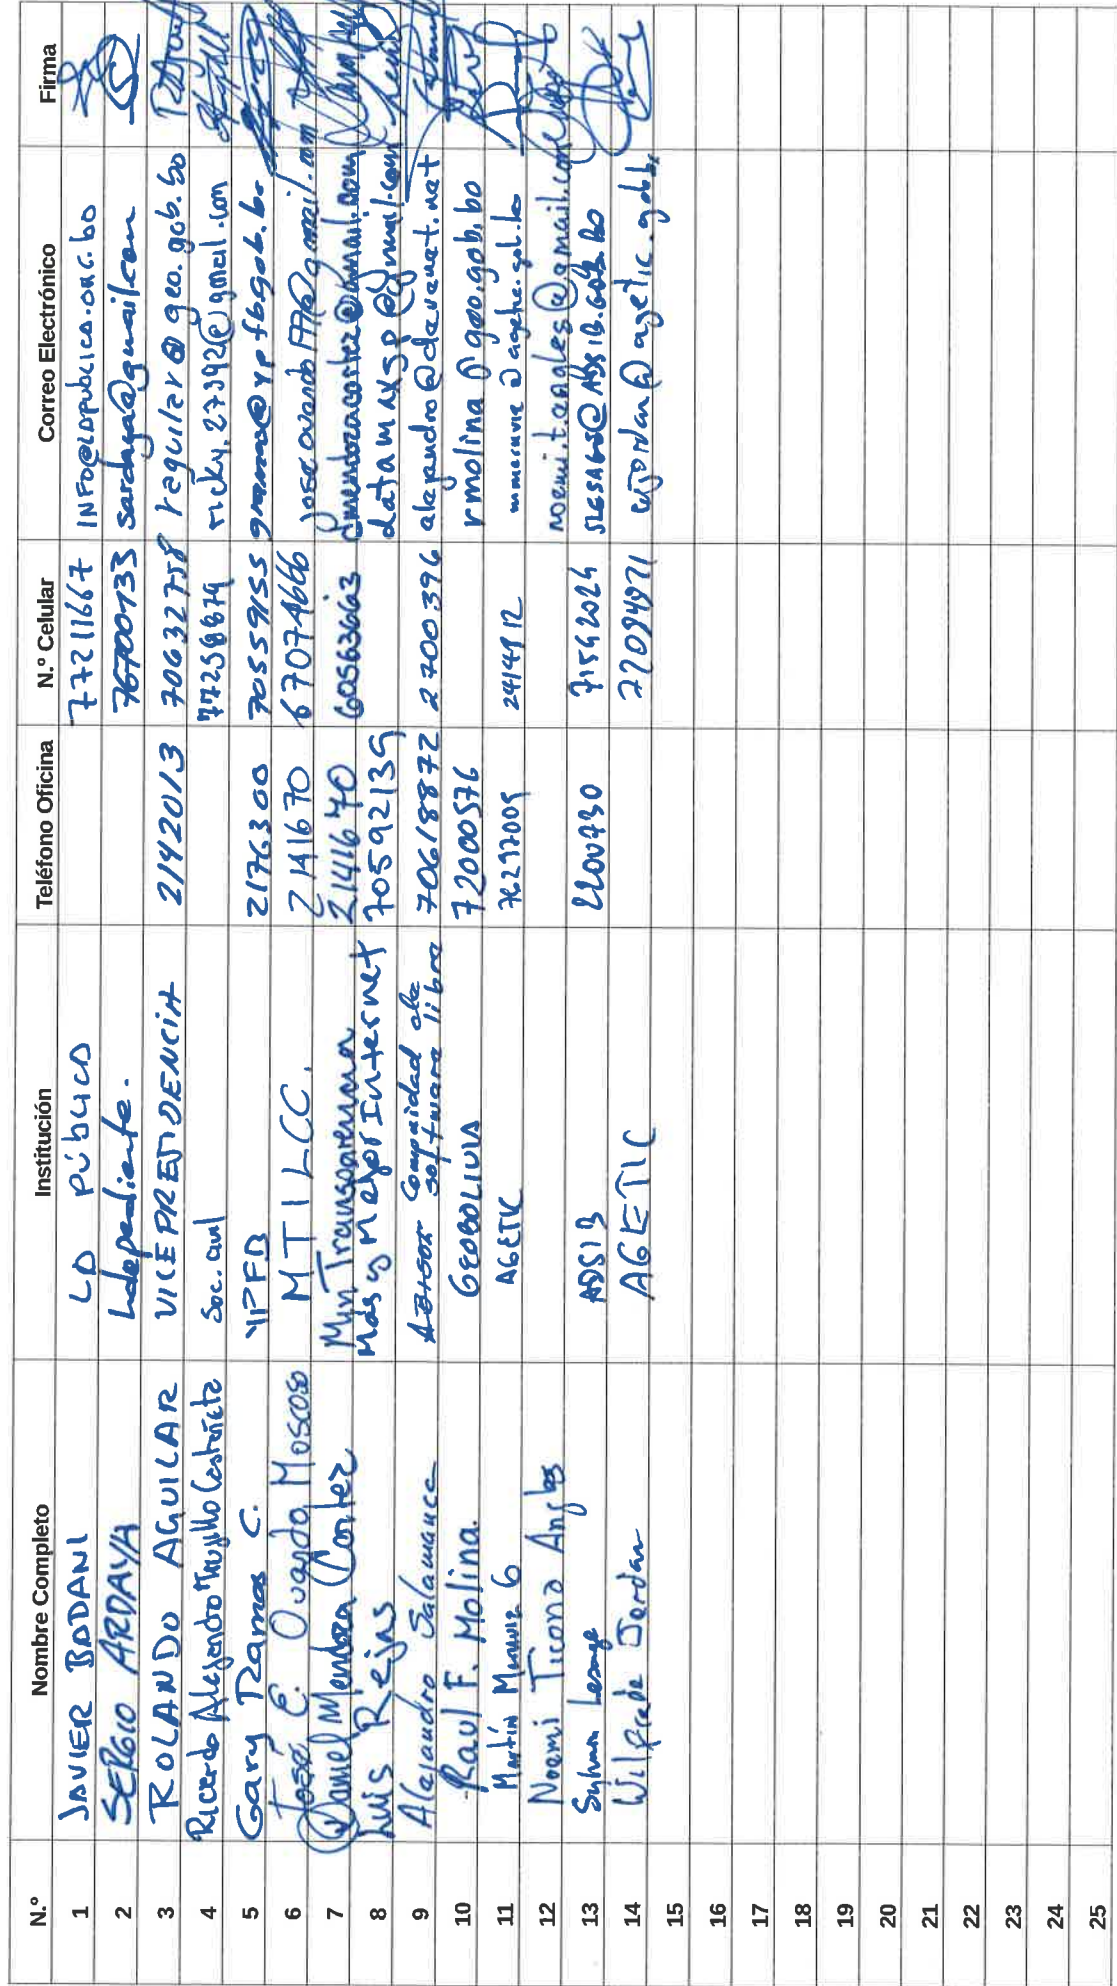 N.º Nombre Completo Institución Teléfono Oficina N.º Celular Correo Electrónico Firma
1 JAVIER BADANI LA PÚBLICA 77211667 INFO@LAPUBLICA.ORG.bo
2 SERGIO ARDAYA Independiente. 76700733 sardaya@gmail.com
3 ROLANDO AGUILAR VICEPRESIDENCIA 2142013 70632758 raguilar@geo.gob.bo
4 Ricardo Alejandro Trujillo Castañeta Soc. civil 77258879 ricky.27392@gmail.com
5 Gary Ramos C. YPFB 2176300 70559155 gramos@ypfb.gob.bo
6 José E. Ovando Moscoso MTILCC. 2141670 67074666 jose.ovando777@gmail.com
7 Daniel Mendoza Cortez Min Transparencia 2141670 60563663 dmendozacortez@gmail.com
8 Luis Rejas Más y Mejor Internet 70592139 datamaxsp@gmail.com
9 Alejandro Salamanca Comunidad de software libre 70618872 2700396 alejandro@devenet.net
10 Raul F. Molina. GEOBOLIVIA 72000576 rmolina@geo.gob.bo
11 Martín G AGETIC 76297009 2414912 @agetic.gob.bo
12 Noemi Ticona Angles noemi.t.angles@gmail.com
13 Sylvain Lesage ADSIB 2200730 71562024 SLESAGE@ADSIB.GOB.BO
14 Wilfredo Jordan AGETIC 72094971 wjordan@agetic.gob.bo
15
16
17
18
19
20
21
22
23
24
25